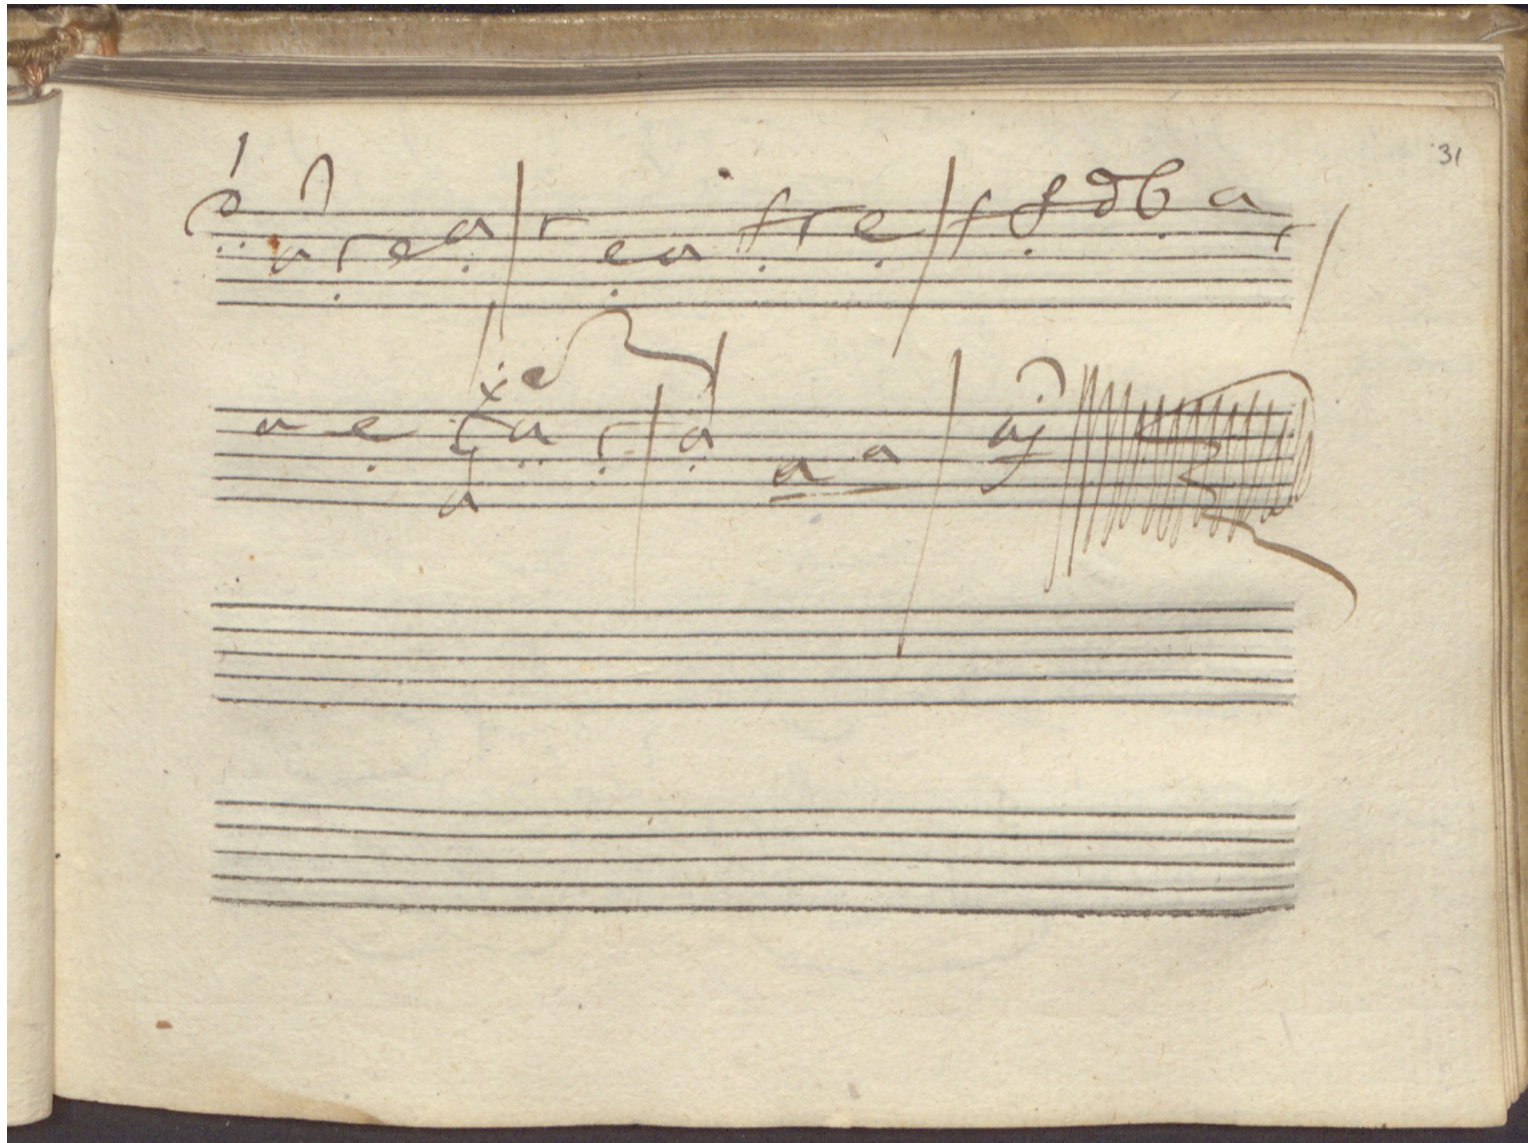 31
a r e a r e a f r e f f d b a r
a e r a r a a a a j
a